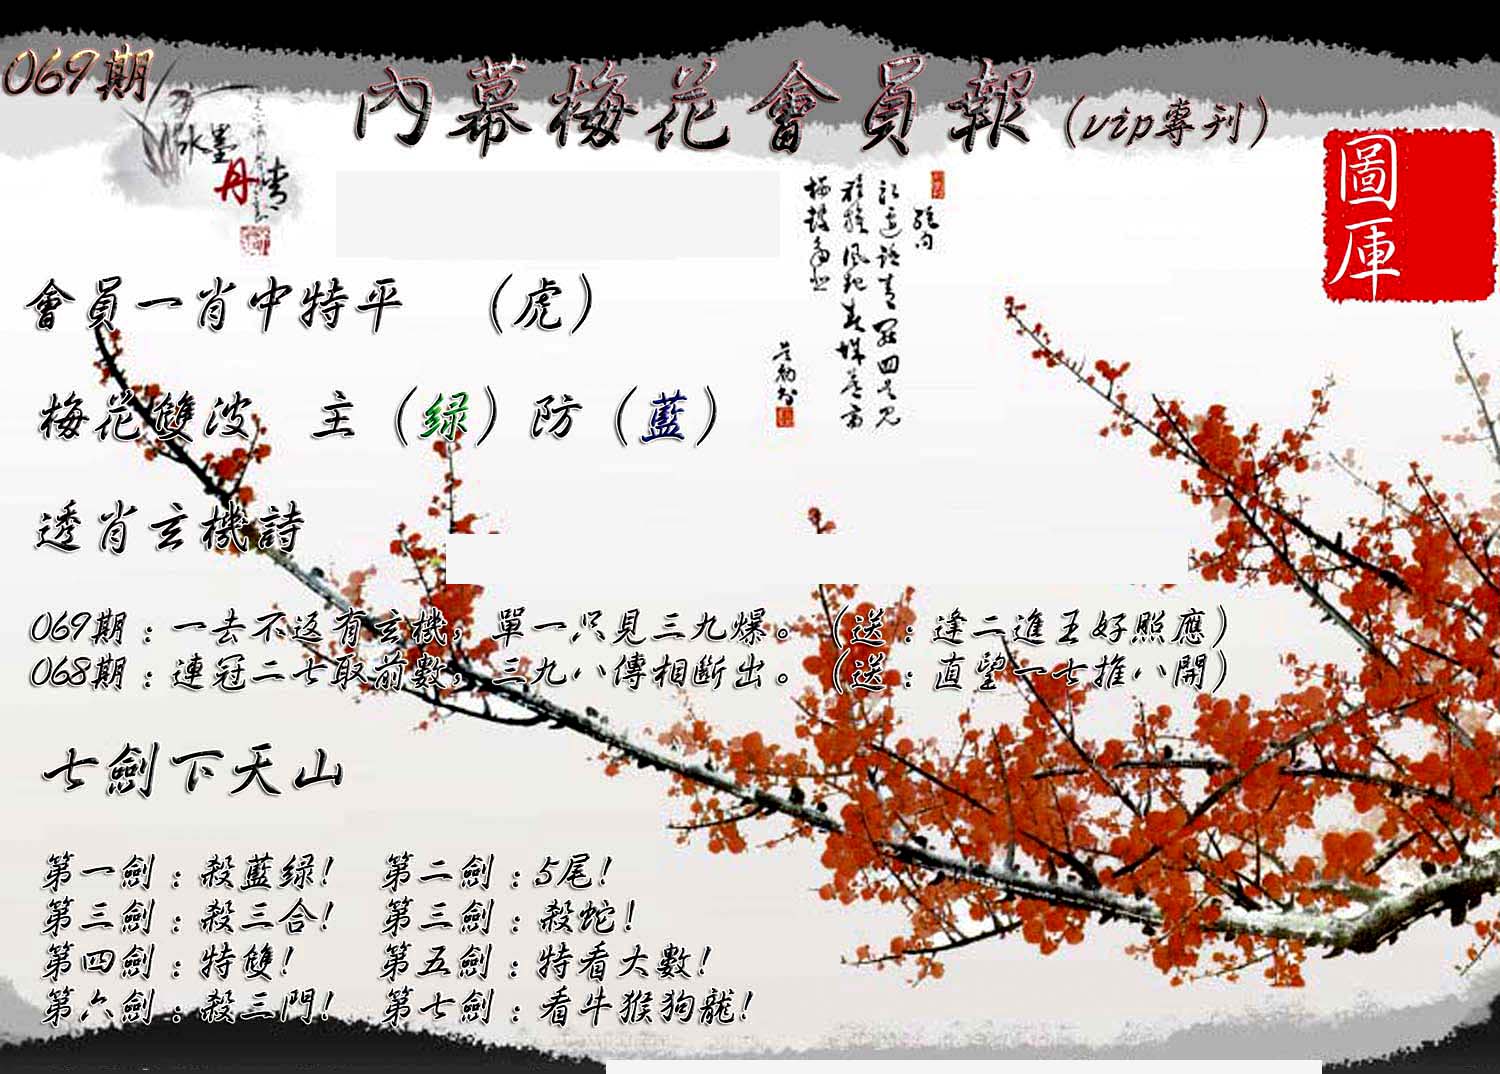 069期
內幕梅花會員報（vip專刊）
水墨
丹青
圖庫
會員一肖中特平　（虎）
梅花雙波　主（绿）防（藍）
透肖玄機詩
069期：一去不返有玄機，單一只見三九爆。（送：逢二進五好照應）
068期：連冠二七取前數，三九八傳相斷出。（送：直望一七推八開）
七劍下天山
第一劍：殺藍绿！　第二劍：5尾！
第三劍：殺三合！　第三劍：殺蛇！
第四劍：特雙！　第五劍：特看大數！
第六劍：殺三門！　第七劍：看牛猴狗龍！